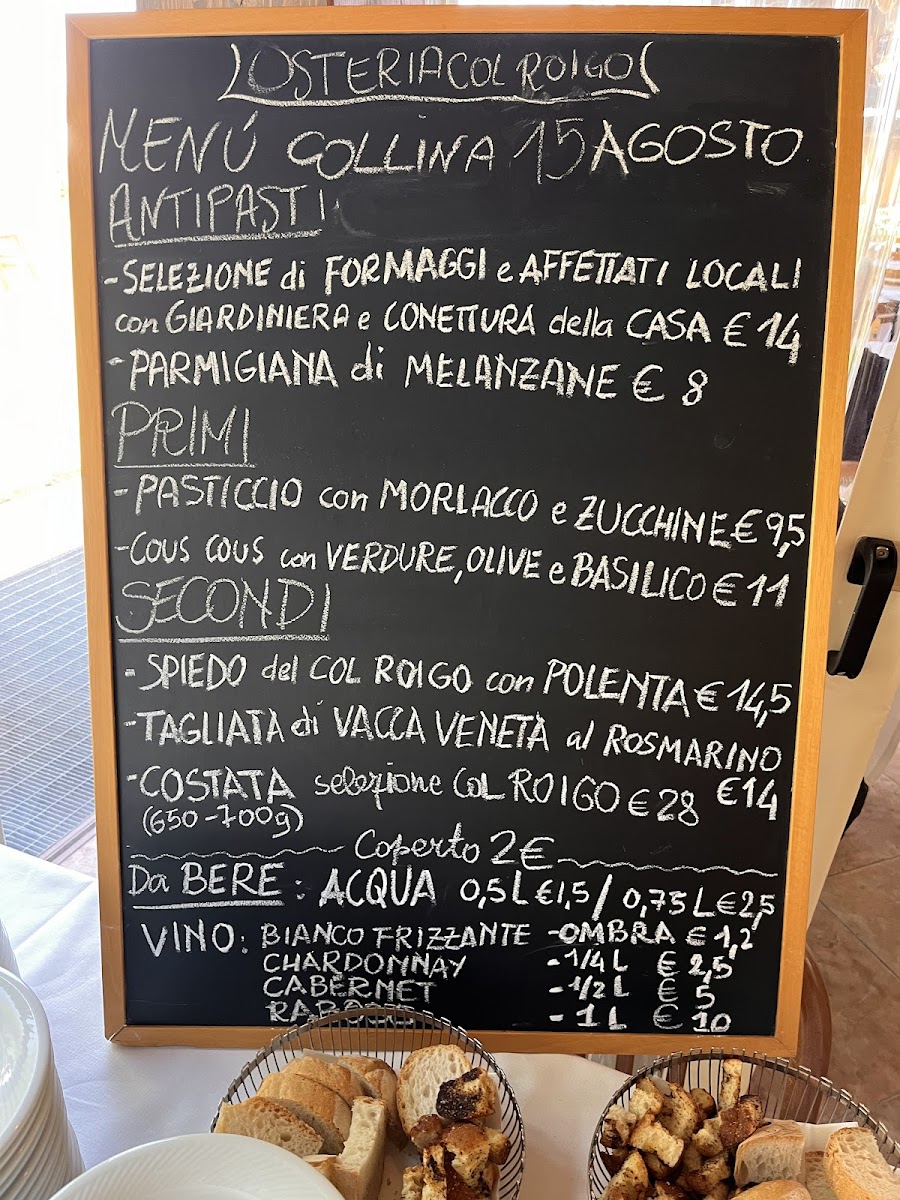 OSTERIA COL ROIGO
MENÚ COLLINA 15 AGOSTO
ANTIPASTI
-SELEZIONE di FORMAGGI e AFFETTATI LOCALI
con GIARDINIERA e CONETTURA della CASA € 14
-PARMIGIANA di MELANZANE € 8
PRIMI
-PASTICCIO con MORLACCO e ZUCCHINE € 9,5
-COUS COUS con VERDURE, OLIVE e BASILICO € 11
SECONDI
-SPIEDO del COL ROIGO con POLENTA € 14,5
-TAGLIATA di VACCA VENETA al ROSMARINO
€ 14
-COSTATA selezione COL ROIGO € 28
(650-700g)
Coperto 2€
Da BERE: ACQUA 0,5L €1,5 / 0,75L €2,5
VINO: BIANCO FRIZZANTE -OMBRA € 1,2
CHARDONNAY -1/4 L € 2,5
CABERNET -1/2 L € 5
-1 L € 10